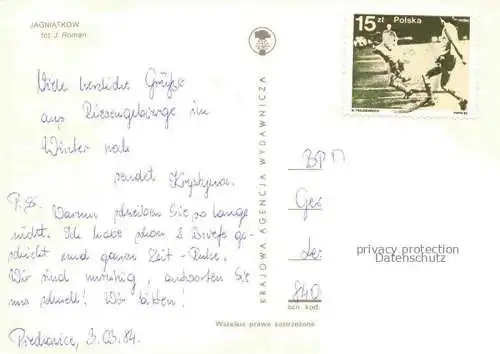 JAGNIĄTKÓW
fot J. Roman
15 zł Polska
Viele herzliche Grüße
aus Riesengebirge im
Winter noch
sendet Krystyna.
P.S. Warum schreiben Sie so lange
nicht. Ich habe schon 2 Briefe ge-
schickt und ganze Zeit - Ruhe.
Wir sind unruhig, antworten Sie
uns schnell! Wir bitten!
Piechowice, 3.03.84.
KRAJOWA AGENCJA WYDAWNICZA
privacy protection
Datenschutz
840
Wszelkie prawa zastrzeżone